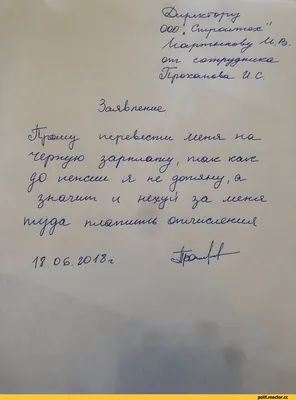 Директору
ООО „Стройтех"
Мартынову М.В.
от сотрудника
Проханова И.С.
Заявление
Прошу перевести меня на
черную зарплату, так как
до пенсии я не дотяну, а
значит и нехуй за меня
туда платить отчисления
18.06.2018г
polit.reactor.cc